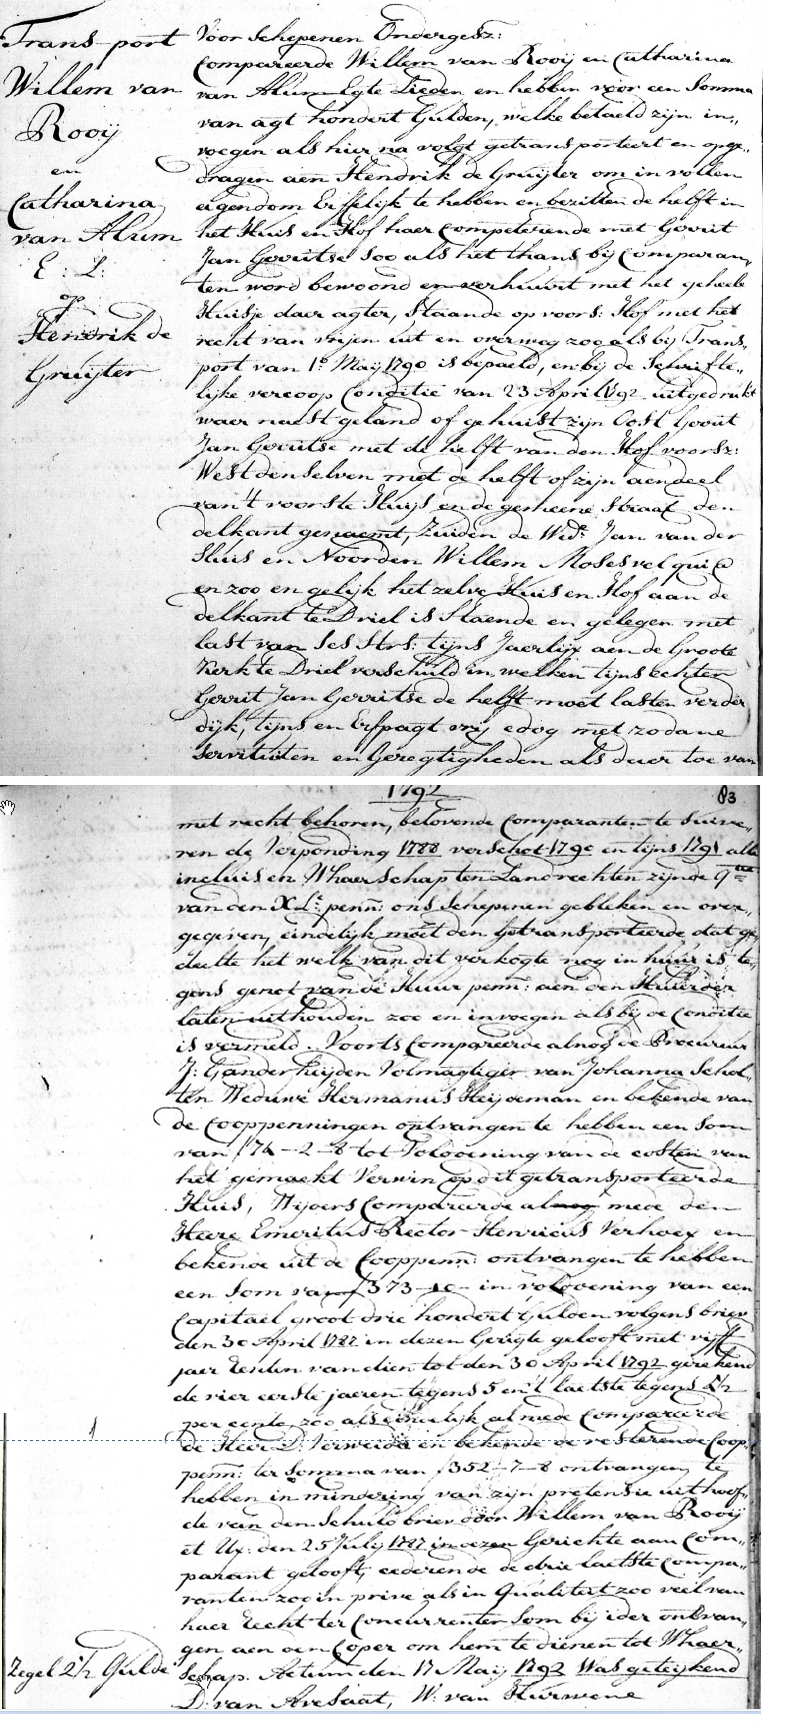 Trans-port
Willem van
Rooij
en
Catharina
van Alum
E: L:
op
Hendrik de
Gruijter
Voor Schepenen Ondergesz:
Compareerde Willem van Rooij en Catharina
van Alum Egte Lieden en hebben voor een Somma
van agt hondert Gulden, welke betaeld zijn in„
voegen als hier na volgt getransporteert en opge„
dragen aen Hendrik de Gruijter om in vollen
eigendom Erffelijk te hebben en bezitten de helft in
het Huis en Hof haer Competerende met Gerrit
Jan Gerritse soo als het thans bij Comparan„
ten word bewoond en verhuirt met het geheele
Huisje daer agter, Staande op voors: Hof met het
recht van vrijen uit en overweg zoo als bij Trans„
port van 1e Maij 1790 is bepaeld, en bij de Schrifte„
lijke vercoop Conditie van 23 April 1792 uitgedrukt
waer naest geland of gehuist zijn Oost Gerrit
Jan Gerritse met de helft van den Hof voorsz:
West denselven met de helft of zijn aendeel
van 't voorste Huijs en de gemeene Straat den
delkant genaemt, Zuiden de Wed: Jan van der
Sluis en Noorden Willem Moses vel qui
en zoo en gelijk het zelve Huis en Hof aan de
delkant te Driel is Staende en gelegen met
last van Ses Strs: tijns Jaerlijx aen de Groote
Kerk te Driel verschuld in welken tijns echter
Gerrit Jan Gerritse de helft moet lasten verder
dijk, tijns en Erfpagt vrij edog met zodane
Servituten en Geregtigheden als daer toe van
1792
83
met recht behoren, belovende Comparanten te Suive„
ren de Verponding 1788 verschot 1790 en tijns 1791 alle
incluis en Whaerschap ten Landrechten zijnde
van den XLe penn: ons Schepenen gebleken en over„
gegeven, eindelijk moet den Getransporteerde dat ge„
deelte het welk van dit verkogte nog in huur is te„
gens genot van de Huur penn: aen den Huurder
laten uithouden zoo en invoegen als bij de Conditie
is vermeld. Voorts Compareerde alnog de Procureur
J: G: van der Heijden Volmagtiger van Johanna Schol„
ten Weduwe Hermanus Heijdeman en bekende van
de Cooppenningen ontvangen te hebben een Som
van ƒ74-2-8 tot Voldoening van de costen van
het gemaekt Verwin op dit getransporteerde
Huis, Wijders Compareerde mede den
Heere Emeritus Rector Henricus Verhoex en
bekende uit de Cooppenn: ontvangen te hebben
een Som van ƒ373-10- in voldoening van een
Capitael groot drie hondert Gulden volgens brief
den 30 April 1787 in dezen Gerigte gelooft met vijff
jaer Renten van dien tot den 30 April 1792 gerekend
de vier eerste jaeren tegens 5 en 't laetste tegens 4½
per cento, zoo als eindelijk almede Compareerde
de Heer D: Verweide en bekende de resterende Coop„
penn: ter Somma van ƒ352-7-8 ontvangen te
hebben in mindering van zijn pretensie uit hoof„
de van den Schuld brief door Willem van Rooij
et Ux: den 25 July 1787 in dezen Gerichte aan Com„
parant gelooft, cederende de drie laetste Compa„
ranten zoo in prive als in Qualiteit zoo veel van
haer Recht ter Concurrenter Som bij ider ontvan„
gen aen den Coper om hem te dienen tot Whaer„
schap. Actum den 17 Maij 1792 Was geteijkend
D: van Aresaat, W: van Hurwene
Zegel 2½ Gulde